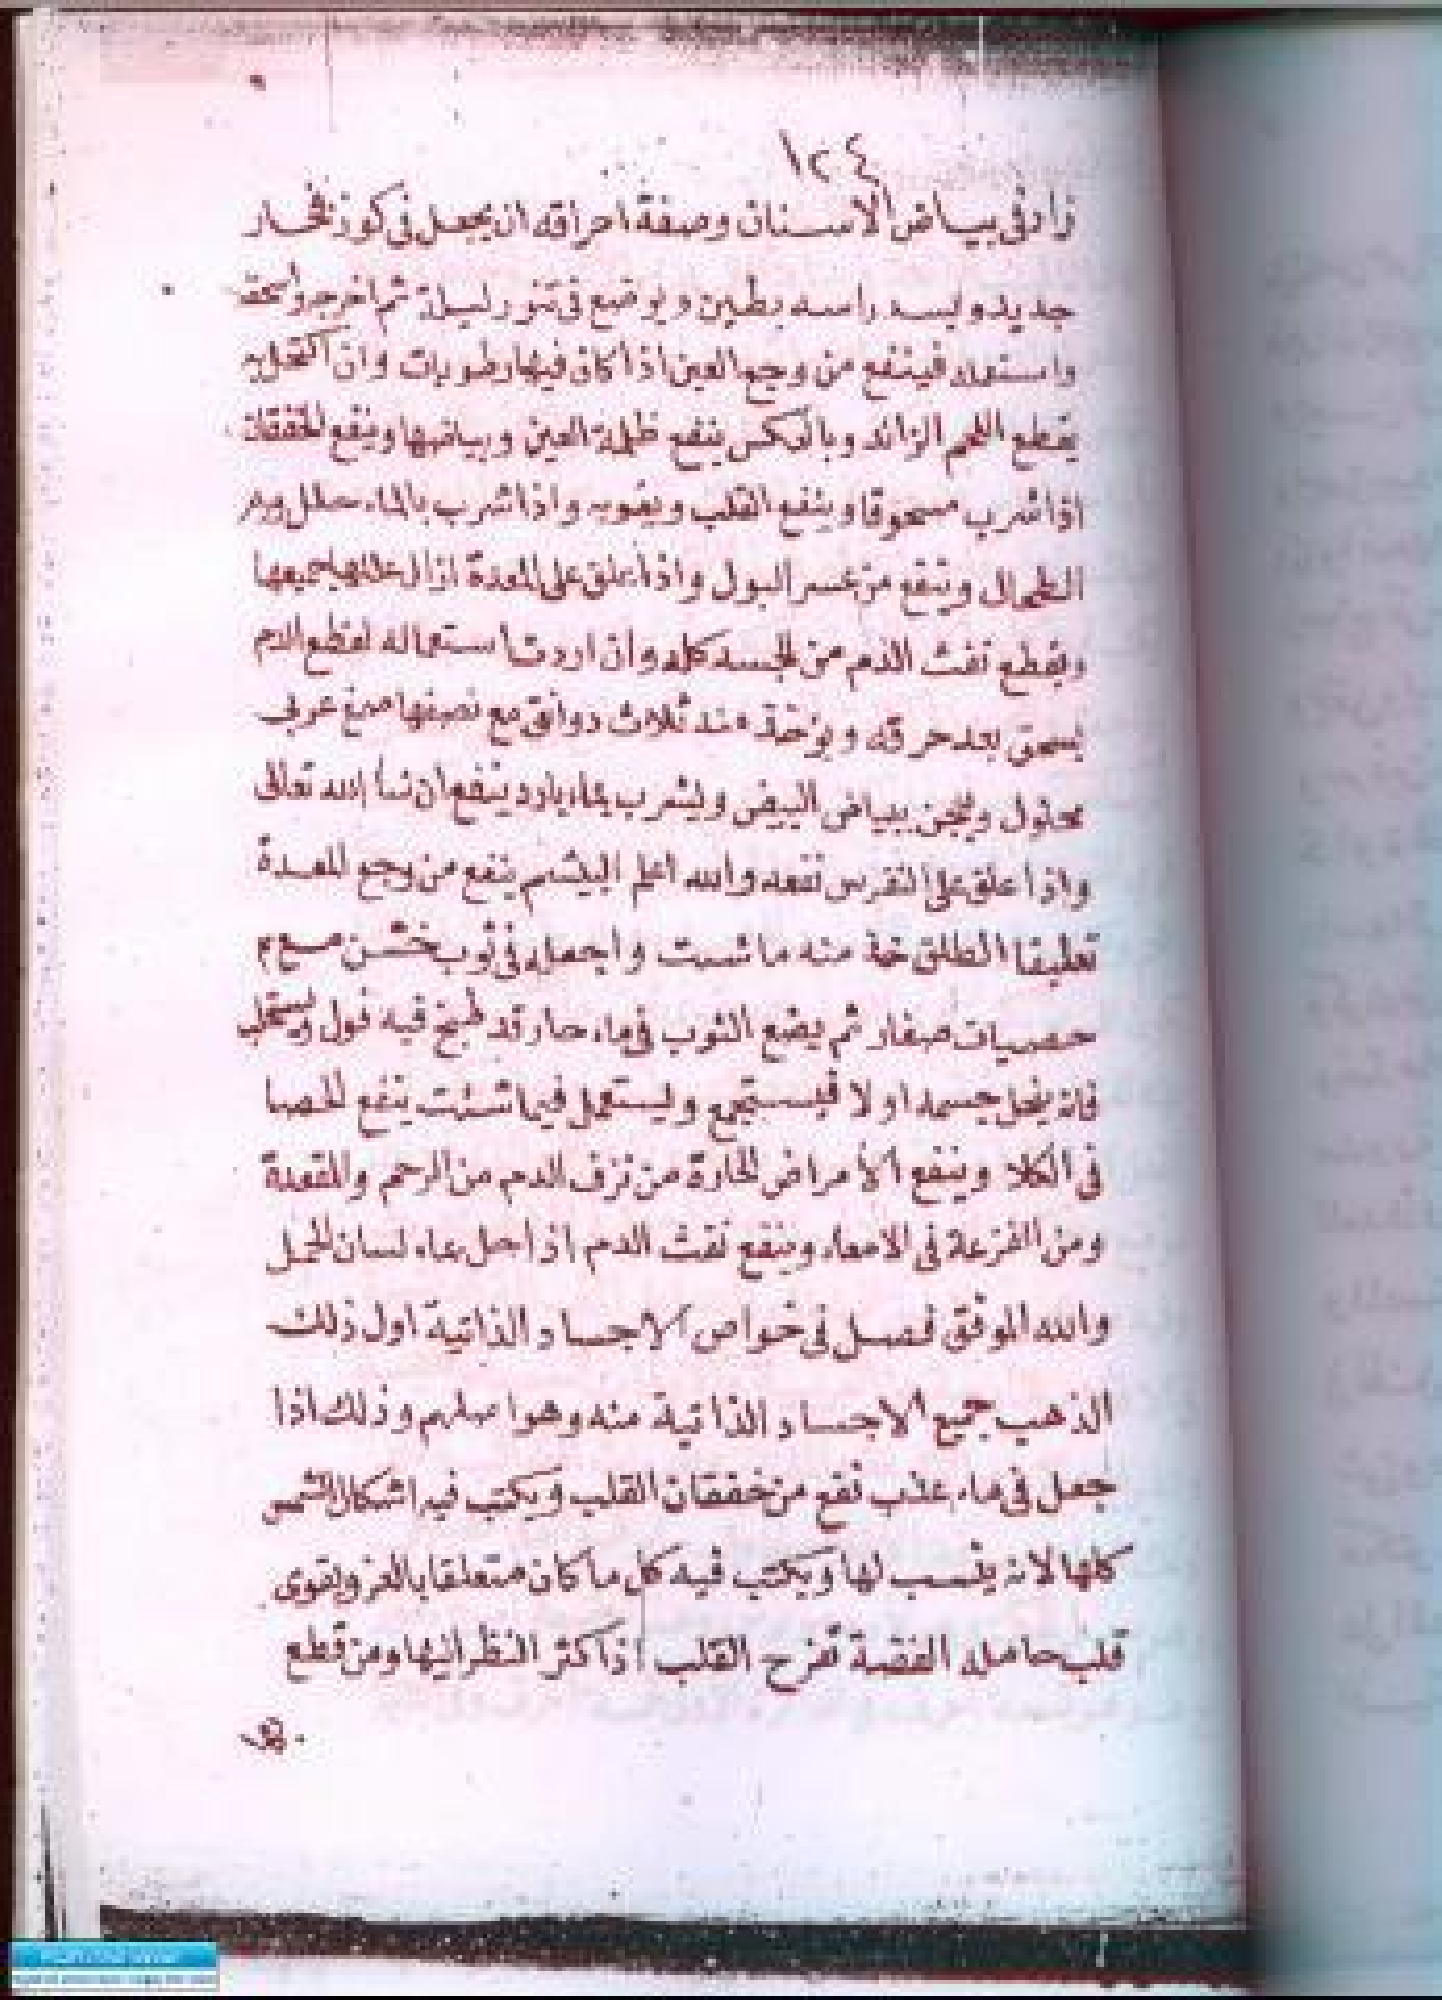 ١٢٤
زاد في بياض الاسنان وصفة احراقه ان يجعل في كوز فخار
جديد ويسد راسه بطين ويوضع في تنور ليلة ثم اخرجه واسحقه
واستعمله فينفع من وجع العين اذا كان فيها رطوبات وان اكتحل به
يقطع اللحم الزائد وبالعكس ينفع ظلمة العين وبياضها وينفع الخفقان
اذا شرب مسحوقا وينفع القلب ويقويه واذا شرب بالماء حلل ورم
الطحال وينفع من عسر البول واذا علق على المعدة ازال عللها جميعها
ويقطع نفث الدم من الجسد كله وان اردت استعماله لقطع الدم
يسحق بعد حرقه ويؤخذ منه ثلاث دوانق مع نصفها صمغ عربي
محلول ويعجن ببياض البيض ويشرب بماء بارد ينفع ان شا الله تعالى
واذا علق على النقرس نفعه والله اعلم اليشم ينفع من وجع المعدة
تعليقا الطلق خذ منه ما شئت واجعله في ثوب خشن مع
حصيات صغار ثم يضع الثوب في ماء حار قد طبخ فيه فول ويستحلب
فانه ينحل جسمه اولا فيستجمع ويستعمل فيما شئت ينفع الحصا
في الكلا وينفع الامراض الحارة من نزف الدم من الرحم والمقعدة
ومن القرعة في الامعاء وينفع نفث الدم اذا حل بماء لسان الحمل
والله الموفق فصل في خواص الاجساد الذاتية اول ذلك
الذهب جميع الاجساد الذاتية منه وهو اصلهم وذلك اذا
جعل في ماء عذب نفع من خفقان القلب ويكتب فيه اشكال الشمس
كلها لانه ينسب لها ويكتب فيه كل ما كان متعلقا بالعز ويقوى
قلب حامله الفضة تفرح القلب اذا كثر النظر اليها ومن قطع